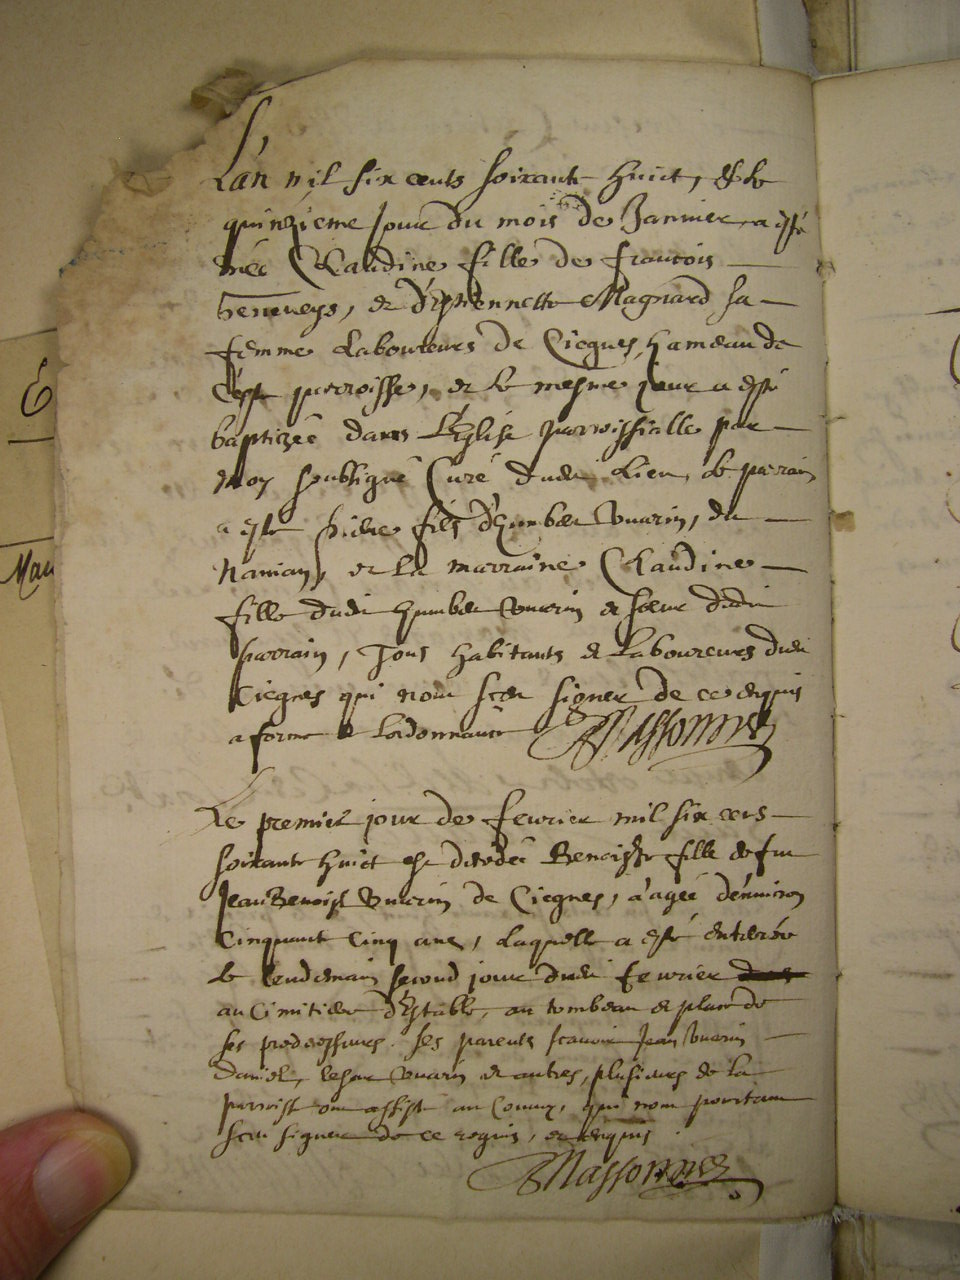 L'an mil six cents soixante huict, & le
quinzieme jour du mois de Janvier, a esté
née Claudine fille de francois
Geneveys, & d'Estiennette Magniard sa
femme Laboureurs de Ciegnes, hameau de
C'este parroisse, & le mesme jour a esté
baptizée dans L'Eglise parroissialle par
moy soubsigné Curé dudit Lieu, le parrain
a esté fils d'humbert Vuarin, du
& La marraine Claudine
fille dudit humbert Vuarin & soeur dudit
parrain, Tous habitants & Laboureurs dudit
Ciegnes qui n'ont sceu signer de ce enquis
a forme de Lordonnance Massonnet
Le premier jour de fevrier mil six cens
soixante huict est decedée Benoiste fille de feu
Jean Benoist Vuarin de Ciegnes, a'agée d'environ
Cinquante Cinq ans, Laquelle a esté enterrée
le lendemain second jour dudit fevrier
au Cimitiere d'Estable, au tombeau & place de
ses predecesseurs. Ses parents scavoir Jean Vuarin
Daniel, Cesar Vuarin & autres, plusieurs de la
parroisse ont assisté au Convoy, qui n'ont
sceu signer de ce requis, & enquis.
Massonnet
E
Mau